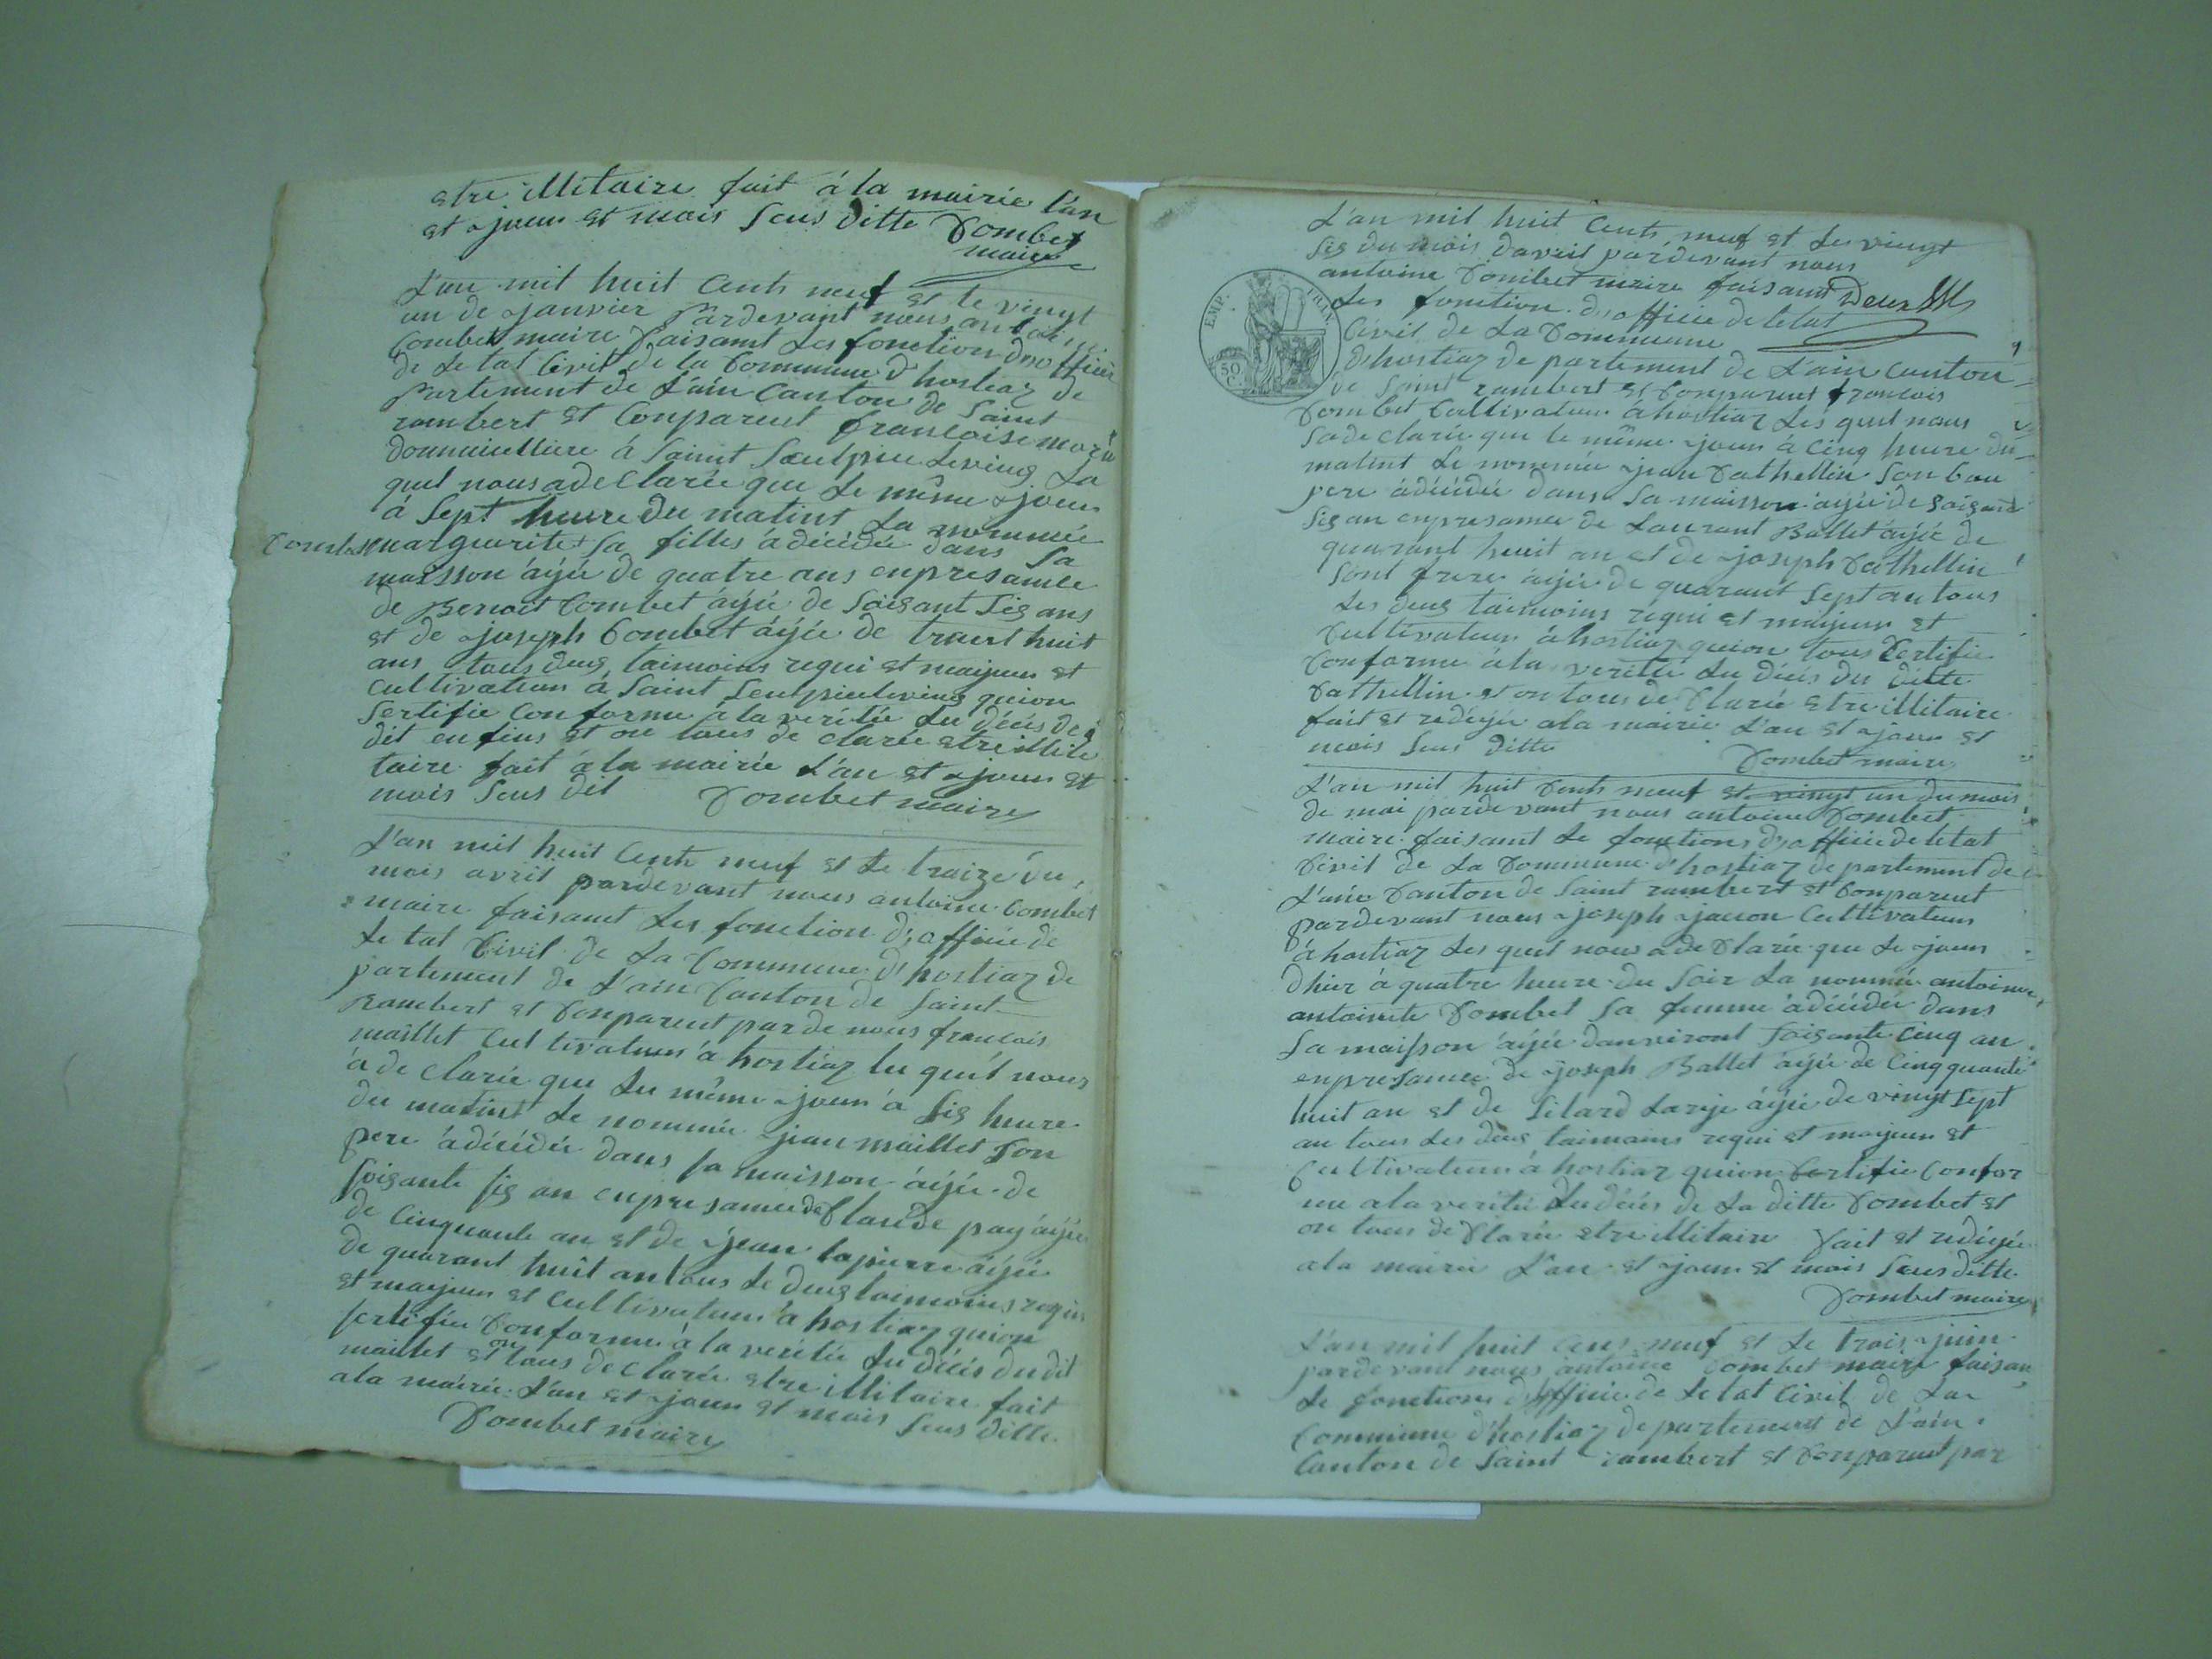 stre illitaire fait à la mairie l'an
et jour et mois sus ditte Combet
maire
L'an mil huit cents neuf et le vingt
un de janvier pardevant nous antoine
Combet maire faisant les fonctions d'officier
de le tat civil de la Commune d'hostiaz de
partement de L'ain Canton de Saint
rambert et Conparent francoise
à Saint La
quel nous a de clarée que le même jour
à Sept heure du matint La nommée
Combet marguerite sa filles à dècédée dans sa
maisson àgée de quatre ans enpresamce
de Benoit Combet àgée de soisant sis ans
et de joseph Combet àgée de trant huit
ans tous deus taimoins requi et majeur et
cultivateurs à Saint quion
sertifie conforme à la verités du décés de
dit enfens et on tous de clarée stre illite
taire fait à la mairie L'an et jour et
mois sus dit Combet maire
L'an mil huit cents neuf et le traize du
mois avril pardevant nous antoine Combet
maire faisant les fonction d'officie de
le tat Civil de La Commune d'hostiaz de
partement de L'ain Canton de Saint
Rambert et Conparent par de nous francois
maillet cultivateur à hostiaz le quel nous
à de clarée que du même jour à sis heure
du matint le nommée jean maillet son
pere à décédée dans sa maisson àgée de
soisante sis an enpresamce de Claude pay àgée
de cinquante an et de jean lapierre àgée
de quarant huit an tous le deus taimoins requi
et majeur et cultivateurs à hostiaz quion
sertifie Conforme à la veritée du décés du dit
maillet et on tous de clarée stre illitaire fait
a la mairie L'an et jour et mois sus ditte
Combet maire
L'an mil huit cents neuf et les vingt
sis du mois davril pardevant nous
antoine Combet maire faisant Deux
Les fonction d'officie de letat
Civil de La Commune
d'hostiaz de partement de L'ain canton
de Saint rambert et Conparent francois
Combet Cultivateur à hostiaz Les quel nous
a de clarée que le même jour à cinq heure du
matint Le nommée jean Cathellin son bau
pere à décédée dans sa maisson àgée de soisant
sis an enpresamce de Laurant Ballet àgée de
quarant huit an et de joseph Cathellin
sont frere àgée de quarant sept an tous
Les deus taimoins requi et majeur et
Cultivateur à hostiaz quion tous Certifie
Conforme à la verittée du décés du ditte
Cathellin et on tous de Clarée stre illitaire
fait et redigée a la mairie L'an et jour et
mois sus ditte Combet maire
L'an mil huit Cents neuf et vingt un du mois
de mai parde vant nous antoine Combet
maire faisant Le fonctions d'officie de letat
Civil de La Commune d'hostiaz de partement de
L'ain Canton de Saint rambert et Conparent
pardevant nous joseph jacson Cultivateur
à hostiaz Les quel nous a de Clarée que Le jour
d'hier à quatre heure du soir La nommée antoinne
antoinete Combet sa femme à décédée dans
La maisson àgée danviront soisante cinq an
enpresamce de joseph Ballet àgée de cinqquante
huit an et de Silard Large àgée de vingt sept
an tous Les deus taimoins requi et majeur et
Cultivateur à hostiaz quion Certifie Confor
me a la veritée du décés de La ditte Combet et
on tous de Clarée stre illitaire fait et redigée
a la mairie L'an et jour et mois sus ditte
Combet maire
L'an mil huit cens neuf et Le trois juin
pardevant nous antoine Combet maire faisan
Le fonctions d'officie de Letat Civil de La
Commune d'hostiaz de partement de L'ain
Canton de Saint rambert et Conparent par
EMP. FRAN
50
C.